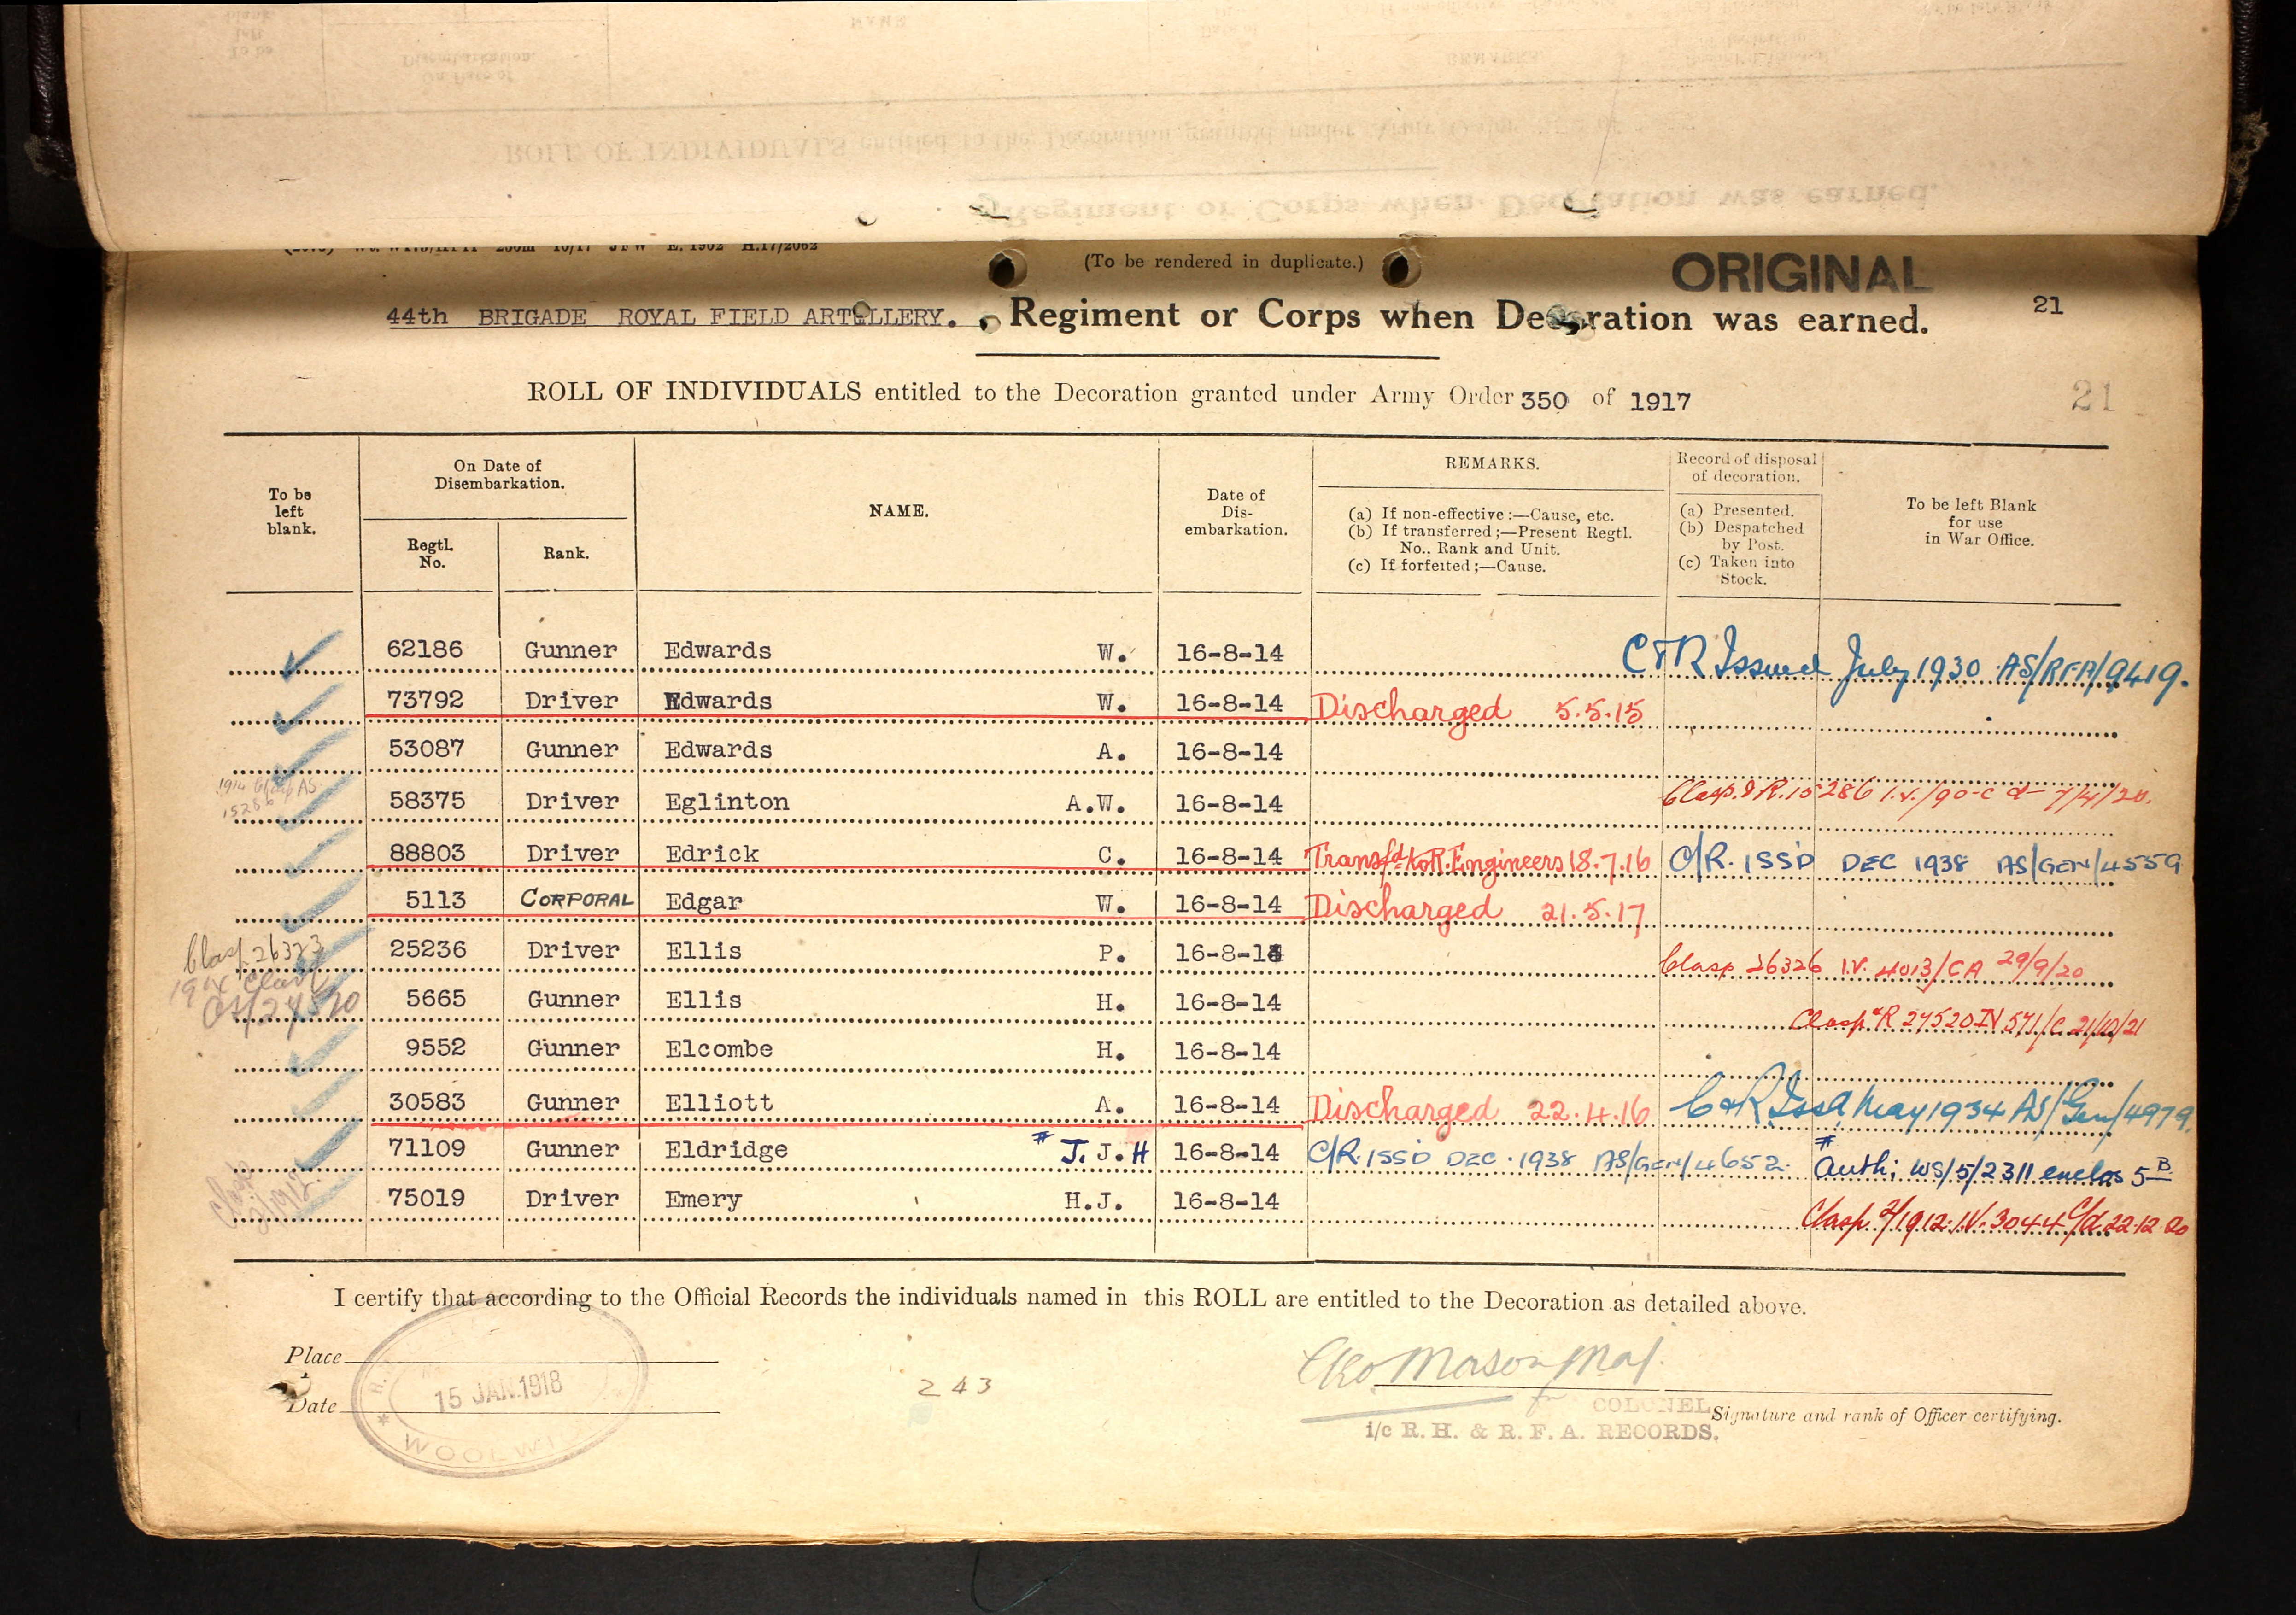 (To be rendered in duplicate.)
ORIGINAL
44th BRIGADE ROYAL FIELD ARTILLERY. Regiment or Corps when Decoration was earned. 21
ROLL OF INDIVIDUALS entitled to the Decoration granted under Army Order 350 of 1917
21
To be left blank.
On Date of Disembarkation.
Regtl. No.
Rank.
NAME.
Date of Dis-embarkation.
REMARKS.
(a) If non-effective :—Cause, etc.
(b) If transferred ;—Present Regtl. No., Rank and Unit.
(c) If forfeited ;—Cause.
Record of disposal of decoration.
(a) Presented.
(b) Despatched by Post.
(c) Taken into Stock.
To be left Blank for use in War Office.
62186 Gunner Edwards W. 16-8-14 C & R Issued July 1930 AS/RFA/9419.
73792 Driver Edwards W. 16-8-14 Discharged 5.5.15
53087 Gunner Edwards A. 16-8-14
58375 Driver Eglinton A.W. 16-8-14 Clasp & R. 15286 I.V./90-C d- 7/4/20.
88803 Driver Edrick C. 16-8-14 Transfd to R. Engineers 18.7.16 C/R. ISSD DEC 1938 AS/GEN/4559
5113 CORPORAL Edgar W. 16-8-14 Discharged 21.5.17
Clasp 26323
25236 Driver Ellis P. 16-8-14 Clasp 26326 I.V. 4013/CA 29/9/20
5665 Gunner Ellis H. 16-8-14 Clasp & R 27520 IV 571/C 21/10/21
9552 Gunner Elcombe H. 16-8-14
30583 Gunner Elliott A. 16-8-14 Discharged 22.4.16 C & R Issd May 1934 AS/Gen/4979.
71109 Gunner Eldridge # J. J. H 16-8-14 C/R. ISSD DEC. 1938 AS/GEN/4652. # Auth; WS/5/2311 enclos 5B
Clasp 2/1912.
75019 Driver Emery H.J. 16-8-14 Clasp 2/1912. I.V. 3044 C/d 22.12.20
I certify that according to the Official Records the individuals named in this ROLL are entitled to the Decoration as detailed above.
Place
15 JAN. 1918
Date
WOOLWI
243
Geo. Mason Maj.
for COLONEL
i/c R. H. & R. F. A. RECORDS.
Signature and rank of Officer certifying.